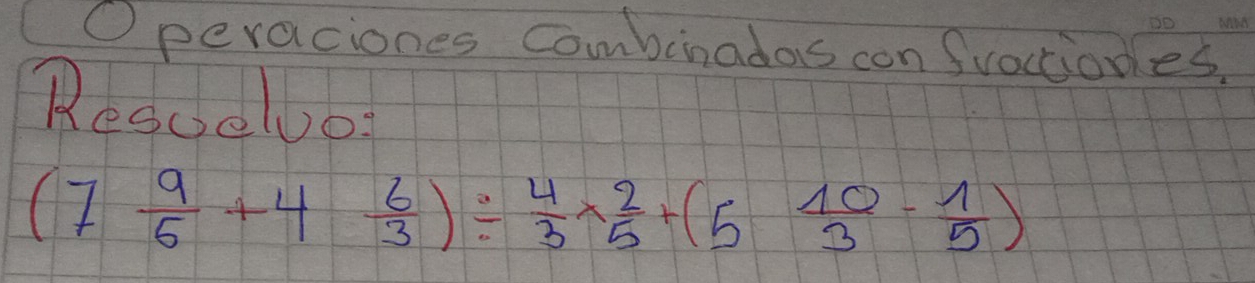 DD MM
Operaciones Combinadas con fracciones.
Resuelvo:
(7 9/5 + 4 6/3) ÷ 4/3 × 2/5 + (5 10/3 - 1/5)